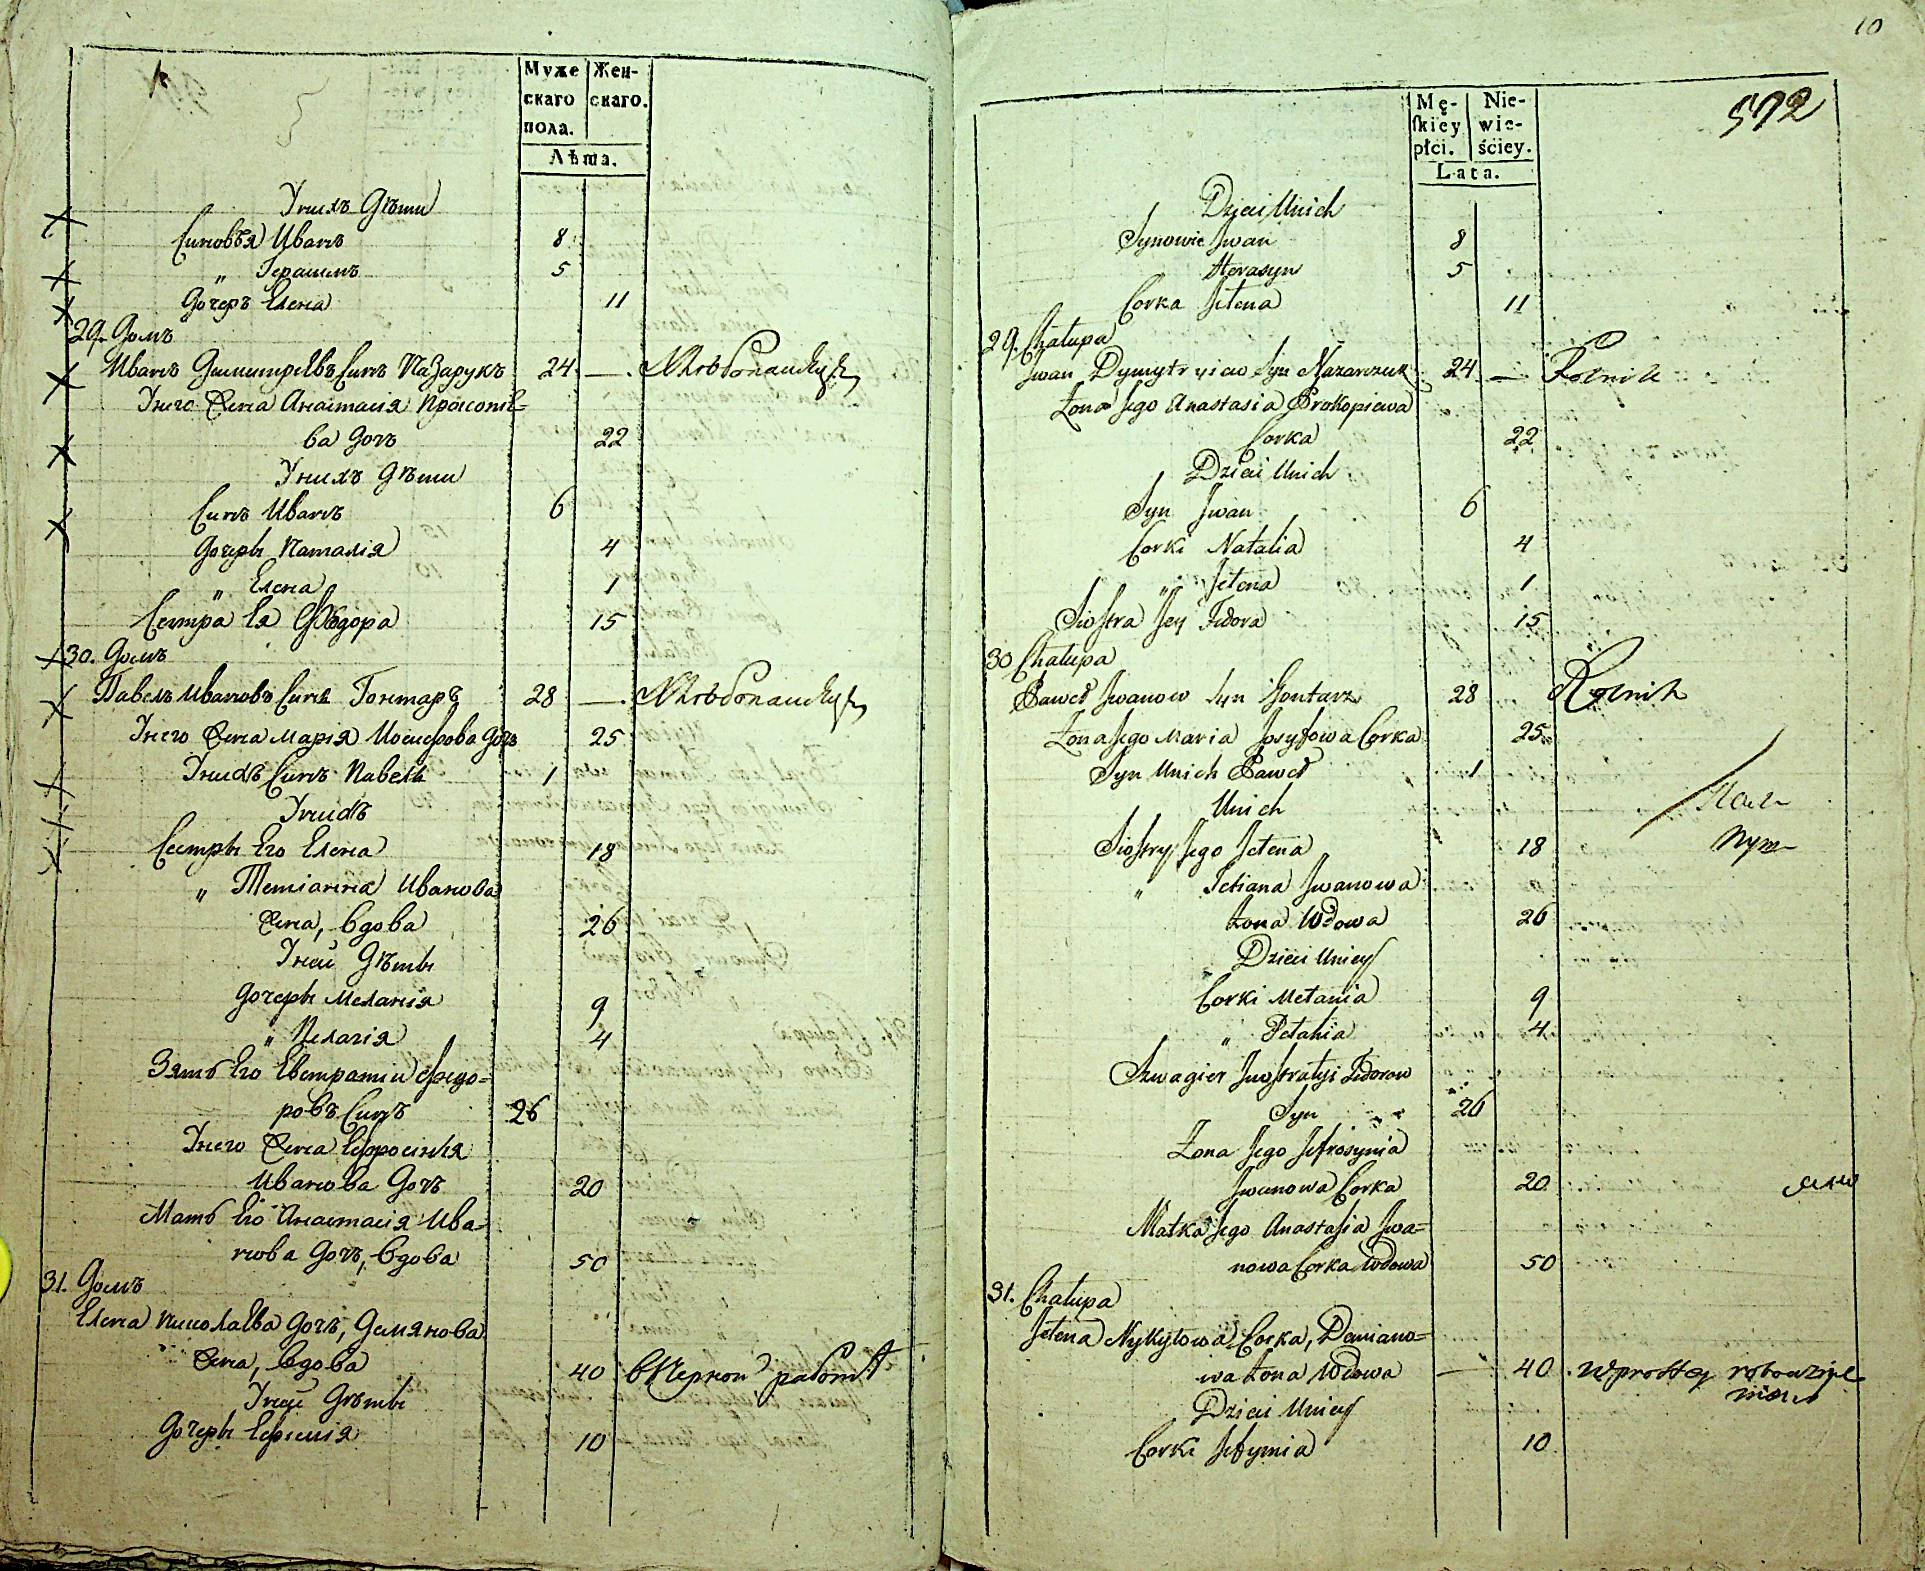 Муже Жен-
скаго скаго.
пола.
Лѣта.
Унихъ Дѣти
Синовья Иванъ 8
„ Герасимъ 5
Дочеръ Елена 11
29. Домъ
Иванъ Димитрiевъ Синъ Назарукъ 24 — Хлѣбопашецъ
Унего Жена Анастасiя Прокопiе=
ва Дочъ 22
Унихъ Дѣти
Синъ Иванъ 6
Дочеры Наталiя 4
„ Елена 1
Сестра Ея Ѳеодора 15
30. Домъ
Павелъ Ивановъ Синъ Гонтаръ 28 — Хлѣбопашецъ
Унего Жена Марiя Иосифова Дочъ 25
Унихъ Синъ Павелъ 1
Унихъ
Сестры Его Елена 18
„ Тетiанна Иванова
Жена, Вдова 26
Уней Дѣты
Дочеры Меланiя 9
„ Пелагiя 4
Зять Его Евстратий Ѳедо=
ровъ Синъ 26
Унего Жена Ефросинiя
Иванова Дочъ 20
Мать Его Анастасiя Ива=
нова Дочъ, Вдова 50
31. Домъ
Елена Николаева Дочъ, Демянова
Жена, Вдова 40 вЧерной работѣ
Уней Дѣты
Дочеры Ефимiя 10
10
572
Mę- Nie-
ſkiey wie-
płci. ściey.
Lata.
Dzieci Unich
Synowie Jwan 8
Herasym 5
Corka Jełena 11
29. Chałupa
Jwan Dymytryiow Syn Nazarczuk 24 — Rolnik
Żona Jego Anastasia Prokopiewa
Corka 22
Dzieci Unich
Syn Jwan 6
Corki Natalia 4
„ Jełena 1
Siostra Jey Fedora 15
30 Chałupa
Paweł Jwanow Syn Gontarz 28 Rolnik
Żona Jego Maria Josyfowa Corka 25
Syn Unich Paweł 1
Unich
Siostry Jego Jełena 18
„ Tetiana Jwanowa
Żona Wdowa 26
Dzieci Uniey
Corki Mełania 9
„ Pełahia 4
Szwagier Jwstratyi Fedorow
Syn 26
Żona Jego Jefrosynia
Jwanowa Corka 20
Matka Jego Anastasia Jwa=
nowa Corka Wdowa 50
31. Chałupa
Jełena Nykytowa Corka, Demiano=
wa Żona Wdowa — 40 wprostey robociznie
Dzieci Uniey
Corki Jefymia 10